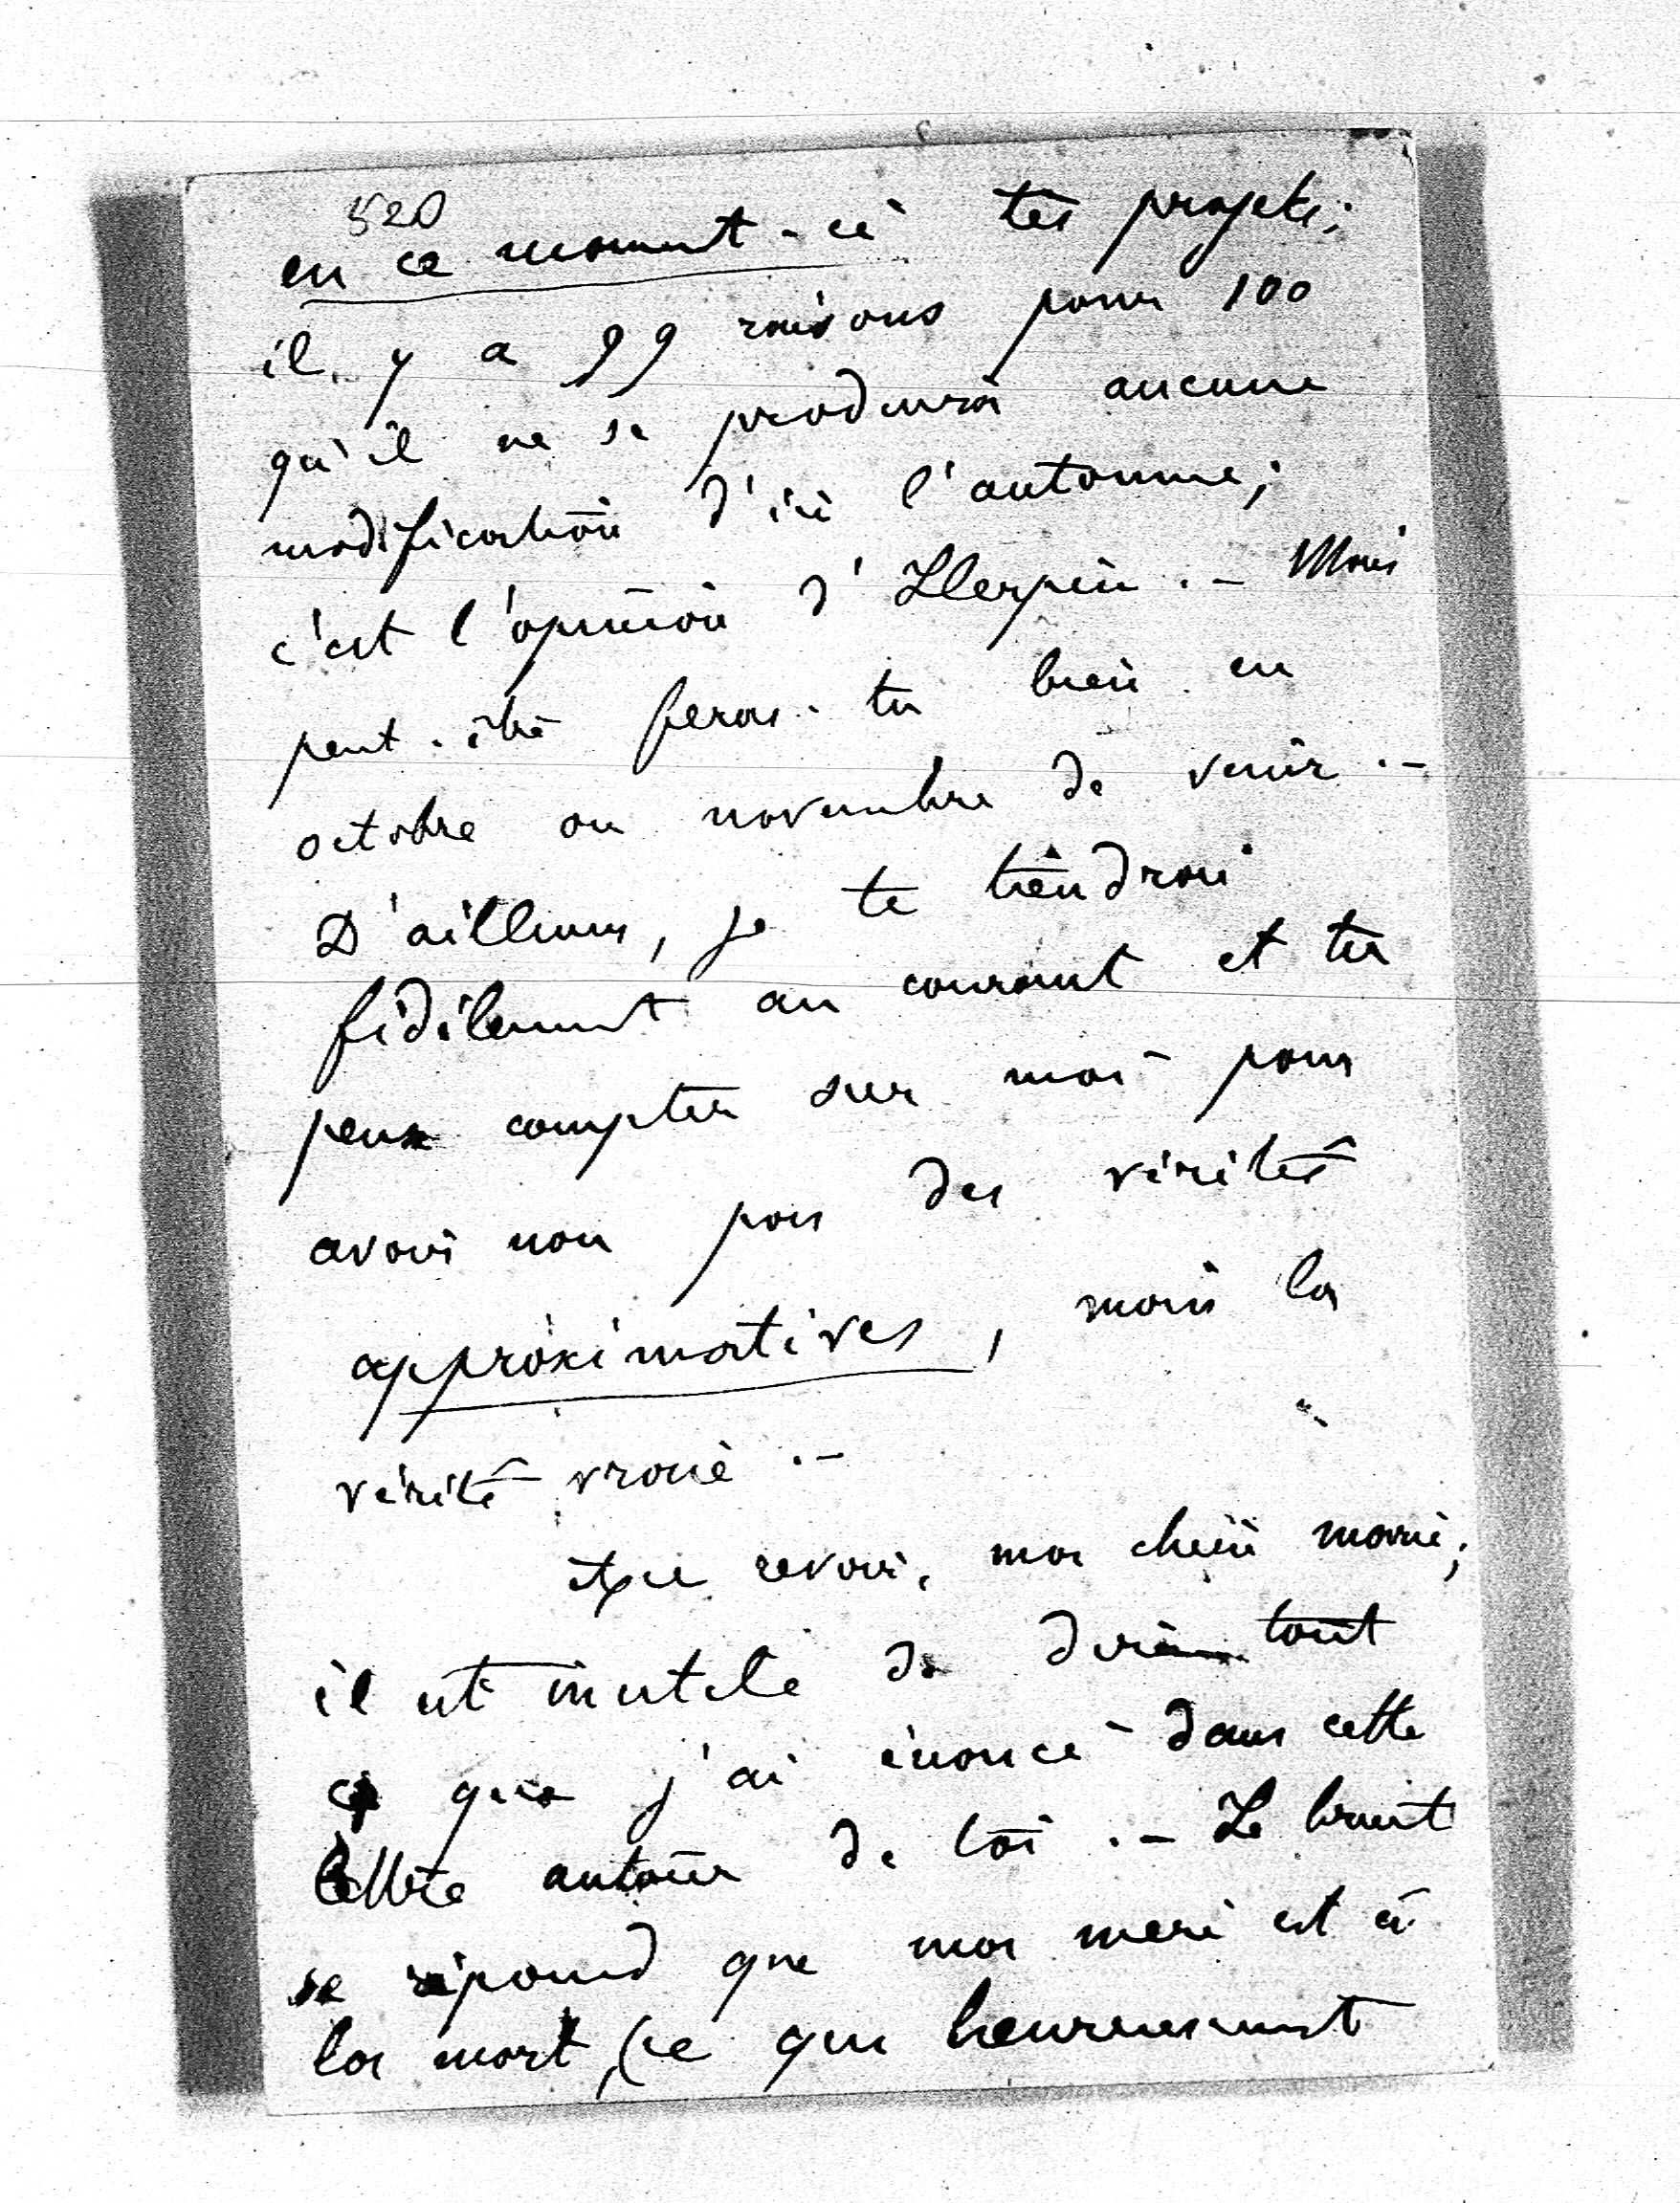 520
en ce moment-ci tes projets;
il y a 99 raisons pour 100
qu'il ne se produira aucune
modification d'ici l'automne;
c'est l'opinion d'Herpin .- Mais
peut-être feras-tu bien en
octobre ou novembre de venir .-
D'ailleurs, je te tiendrai
fidèlement au courant et tu
peux compter sur moi pour
avoir non pas des vérités
approximatives, mais la
vérité vraie .-
Au revoir, ma chère Marie;
il est inutile de dire tout
ce que j'ai énoncé dans cette
lettre autour de toi .- Le bruit
se répand que ma mère est à
la mort, (ce qui heureusement